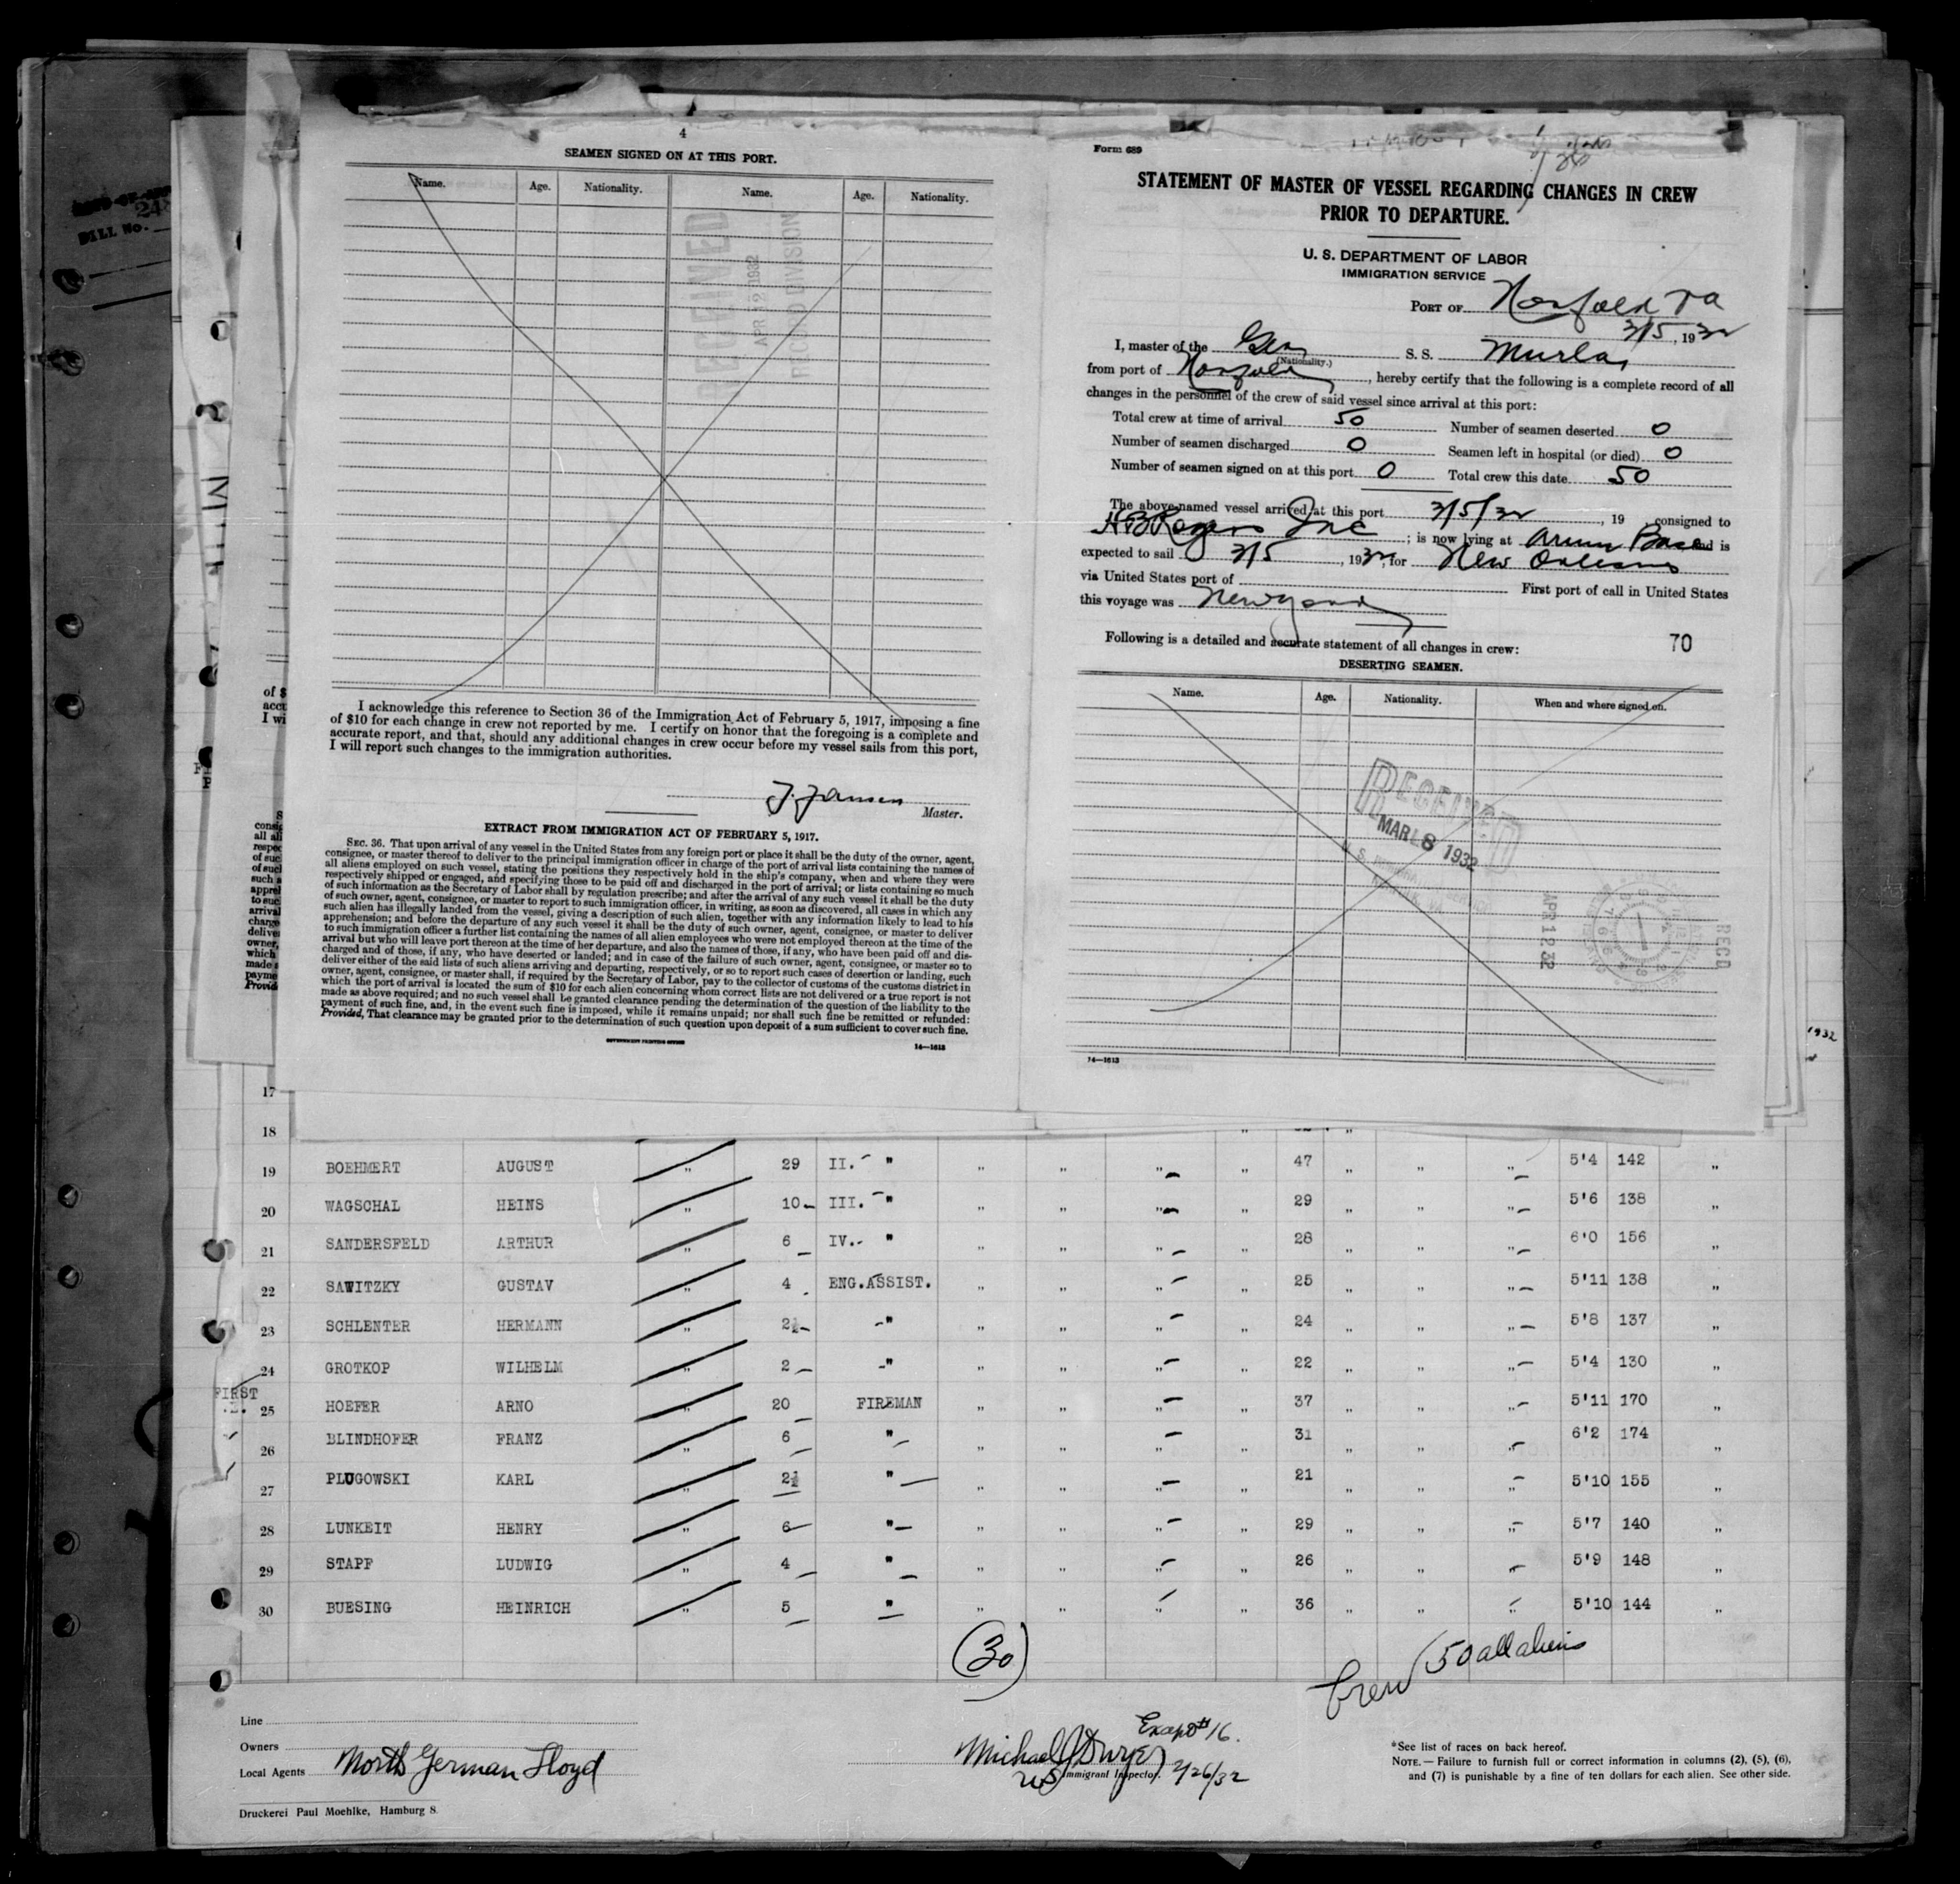 BILL No.
4
SEAMEN SIGNED ON AT THIS PORT.
Name. Age. Nationality. Name. Age. Nationality.
APR 12 1932
RECORD DIVISION
I acknowledge this reference to Section 36 of the Immigration Act of February 5, 1917, imposing a fine
of $10 for each change in crew not reported by me. I certify on honor that the foregoing is a complete and
accurate report, and that, should any additional changes in crew occur before my vessel sails from this port,
I will report such changes to the immigration authorities.
J. Jansen
Master.
EXTRACT FROM IMMIGRATION ACT OF FEBRUARY 5, 1917.
SEC. 36. That upon arrival of any vessel in the United States from any foreign port or place it shall be the duty of the owner, agent,
consignee, or master thereof to deliver to the principal immigration officer in charge of the port of arrival lists containing the names of
all aliens employed on such vessel, stating the positions they respectively hold in the ship's company, when and where they were
respectively shipped or engaged, and specifying those to be paid off and discharged in the port of arrival; or lists containing so much
of such information as the Secretary of Labor shall by regulation prescribe; and after the arrival of any such vessel it shall be the duty
of such owner, agent, consignee, or master to report to such immigration officer, in writing, as soon as discovered, all cases in which any
such alien has illegally landed from the vessel, giving a description of such alien, together with any information likely to lead to his
apprehension; and before the departure of any such vessel it shall be the duty of such owner, agent, consignee, or master to deliver
to such immigration officer a further list containing the names of all alien employees who were not employed thereon at the time of the
arrival but who will leave port thereon at the time of her departure, and also the names of those, if any, who have been paid off and dis-
charged and of those, if any, who have deserted or landed; and in case of the failure of such owner, agent, consignee, or master so to
deliver either of the said lists of such aliens arriving and departing, respectively, or so to report such cases of desertion or landing, such
owner, agent, consignee, or master shall, if required by the Secretary of Labor, pay to the collector of customs of the customs district in
which the port of arrival is located the sum of $10 for each alien concerning whom correct lists are not delivered or a true report is not
made as above required; and no such vessel shall be granted clearance pending the determination of the question of the liability to the
payment of such fine, and, in the event such fine is imposed, while it remains unpaid; nor shall such fine be remitted or refunded:
Provided, That clearance may be granted prior to the determination of such question upon deposit of a sum sufficient to cover such fine.
GOVERNMENT PRINTING OFFICE
14—1613
Form 689
STATEMENT OF MASTER OF VESSEL REGARDING CHANGES IN CREW
PRIOR TO DEPARTURE.
U. S. DEPARTMENT OF LABOR
IMMIGRATION SERVICE
PORT OF Norfolk Va
3/5, 1932
I, master of the Ger S. S. Murla
(Nationality.)
from port of Norfolk, hereby certify that the following is a complete record of all
changes in the personnel of the crew of said vessel since arrival at this port:
Total crew at time of arrival 50 Number of seamen deserted 0
Number of seamen discharged 0 Seamen left in hospital (or died) 0
Number of seamen signed on at this port 0 Total crew this date 50
The above-named vessel arrived at this port 3/5/32, 19 , consigned to
H B Rogers Inc; is now lying at Army Base and is
expected to sail 3/5, 1932, for New Orleans
via United States port of First port of call in United States
this voyage was New york
Following is a detailed and accurate statement of all changes in crew: 70
DESERTING SEAMEN.
Name. Age. Nationality. When and where signed on.
RECEIVED
MAR 8 1932
APR 12 32
RECD
14—1613
17
18
19 BOEHMERT AUGUST " 29 II. " " " " " 47 " " " 5'4 142 "
20 WAGSCHAL HEINS " 10 III. " " " " " 29 " " " 5'6 138 "
21 SANDERSFELD ARTHUR " 6 IV. " " " " " 28 " " " 6'0 156 "
22 SAWITZKY GUSTAV " 4 ENG.ASSIST. " " " " 25 " " " 5'11 138 "
23 SCHLENTER HERMANN " 2½ " " " " " 24 " " " 5'8 137 "
24 GROTKOP WILHELM " 2 " " " " " 22 " " " 5'4 130 "
FIRST
25 HOEFER ARNO " 20 FIREMAN " " " " 37 " " " 5'11 170 "
26 BLINDHOFER FRANZ " 6 " " " " " 31 " " " 6'2 174 "
27 PLUGOWSKI KARL " 2½ " " " " " 21 " " " 5'10 155 "
28 LUNKEIT HENRY " 6 " " " " " 29 " " " 5'7 140 "
29 STAPF LUDWIG " 4 " " " " " 26 " " " 5'9 148 "
30 BUESING HEINRICH " 5 " " " " " 36 " " " 5'10 144 "
(30)
Crew (50 all aliens
Line
Owners
Local Agents North German Lloyd
Except #16.
Michael J Dwyer
US Immigrant Inspector. 2/26/32
*See list of races on back hereof.
NOTE.— Failure to furnish full or correct information in columns (2), (5), (6),
and (7) is punishable by a fine of ten dollars for each alien. See other side.
Druckerei Paul Moehlke, Hamburg 8.